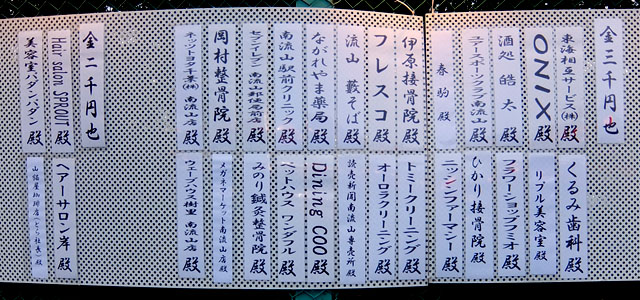 金三千円也
東海相互サービス㈱ 殿
ONIX 殿
酒処 皓大 殿
ユアースポーツクラブ南流山 殿
春駒 殿
伊原接骨院 殿
フレスコ 殿
流山 藪そば 殿
ながれやま薬局 殿
南流山駅前クリニック 殿
セブンイレブン 南流山郵便局前店 殿
岡村整骨院 殿
ネッツトヨタ千葉㈱ 南流山店 殿
金二千円也
Hair salon SPROUT 殿
美容室パダンパダン 殿
くるみ歯科 殿
リプル美容室 殿
フラワーショップフミオ 殿
ひかり接骨院 殿
ニッシンファーマシー 殿
トミークリーニング 殿
オーロラクリーニング 殿
読売新聞南流山専売所 殿
Dining COO 殿
ペットハウス ワンダフル 殿
みのり鍼灸整骨院 殿
メガネマーケット南流山店 殿
ウェーブハウス樹里 南流山店 殿
ヘアーサロン岸 殿